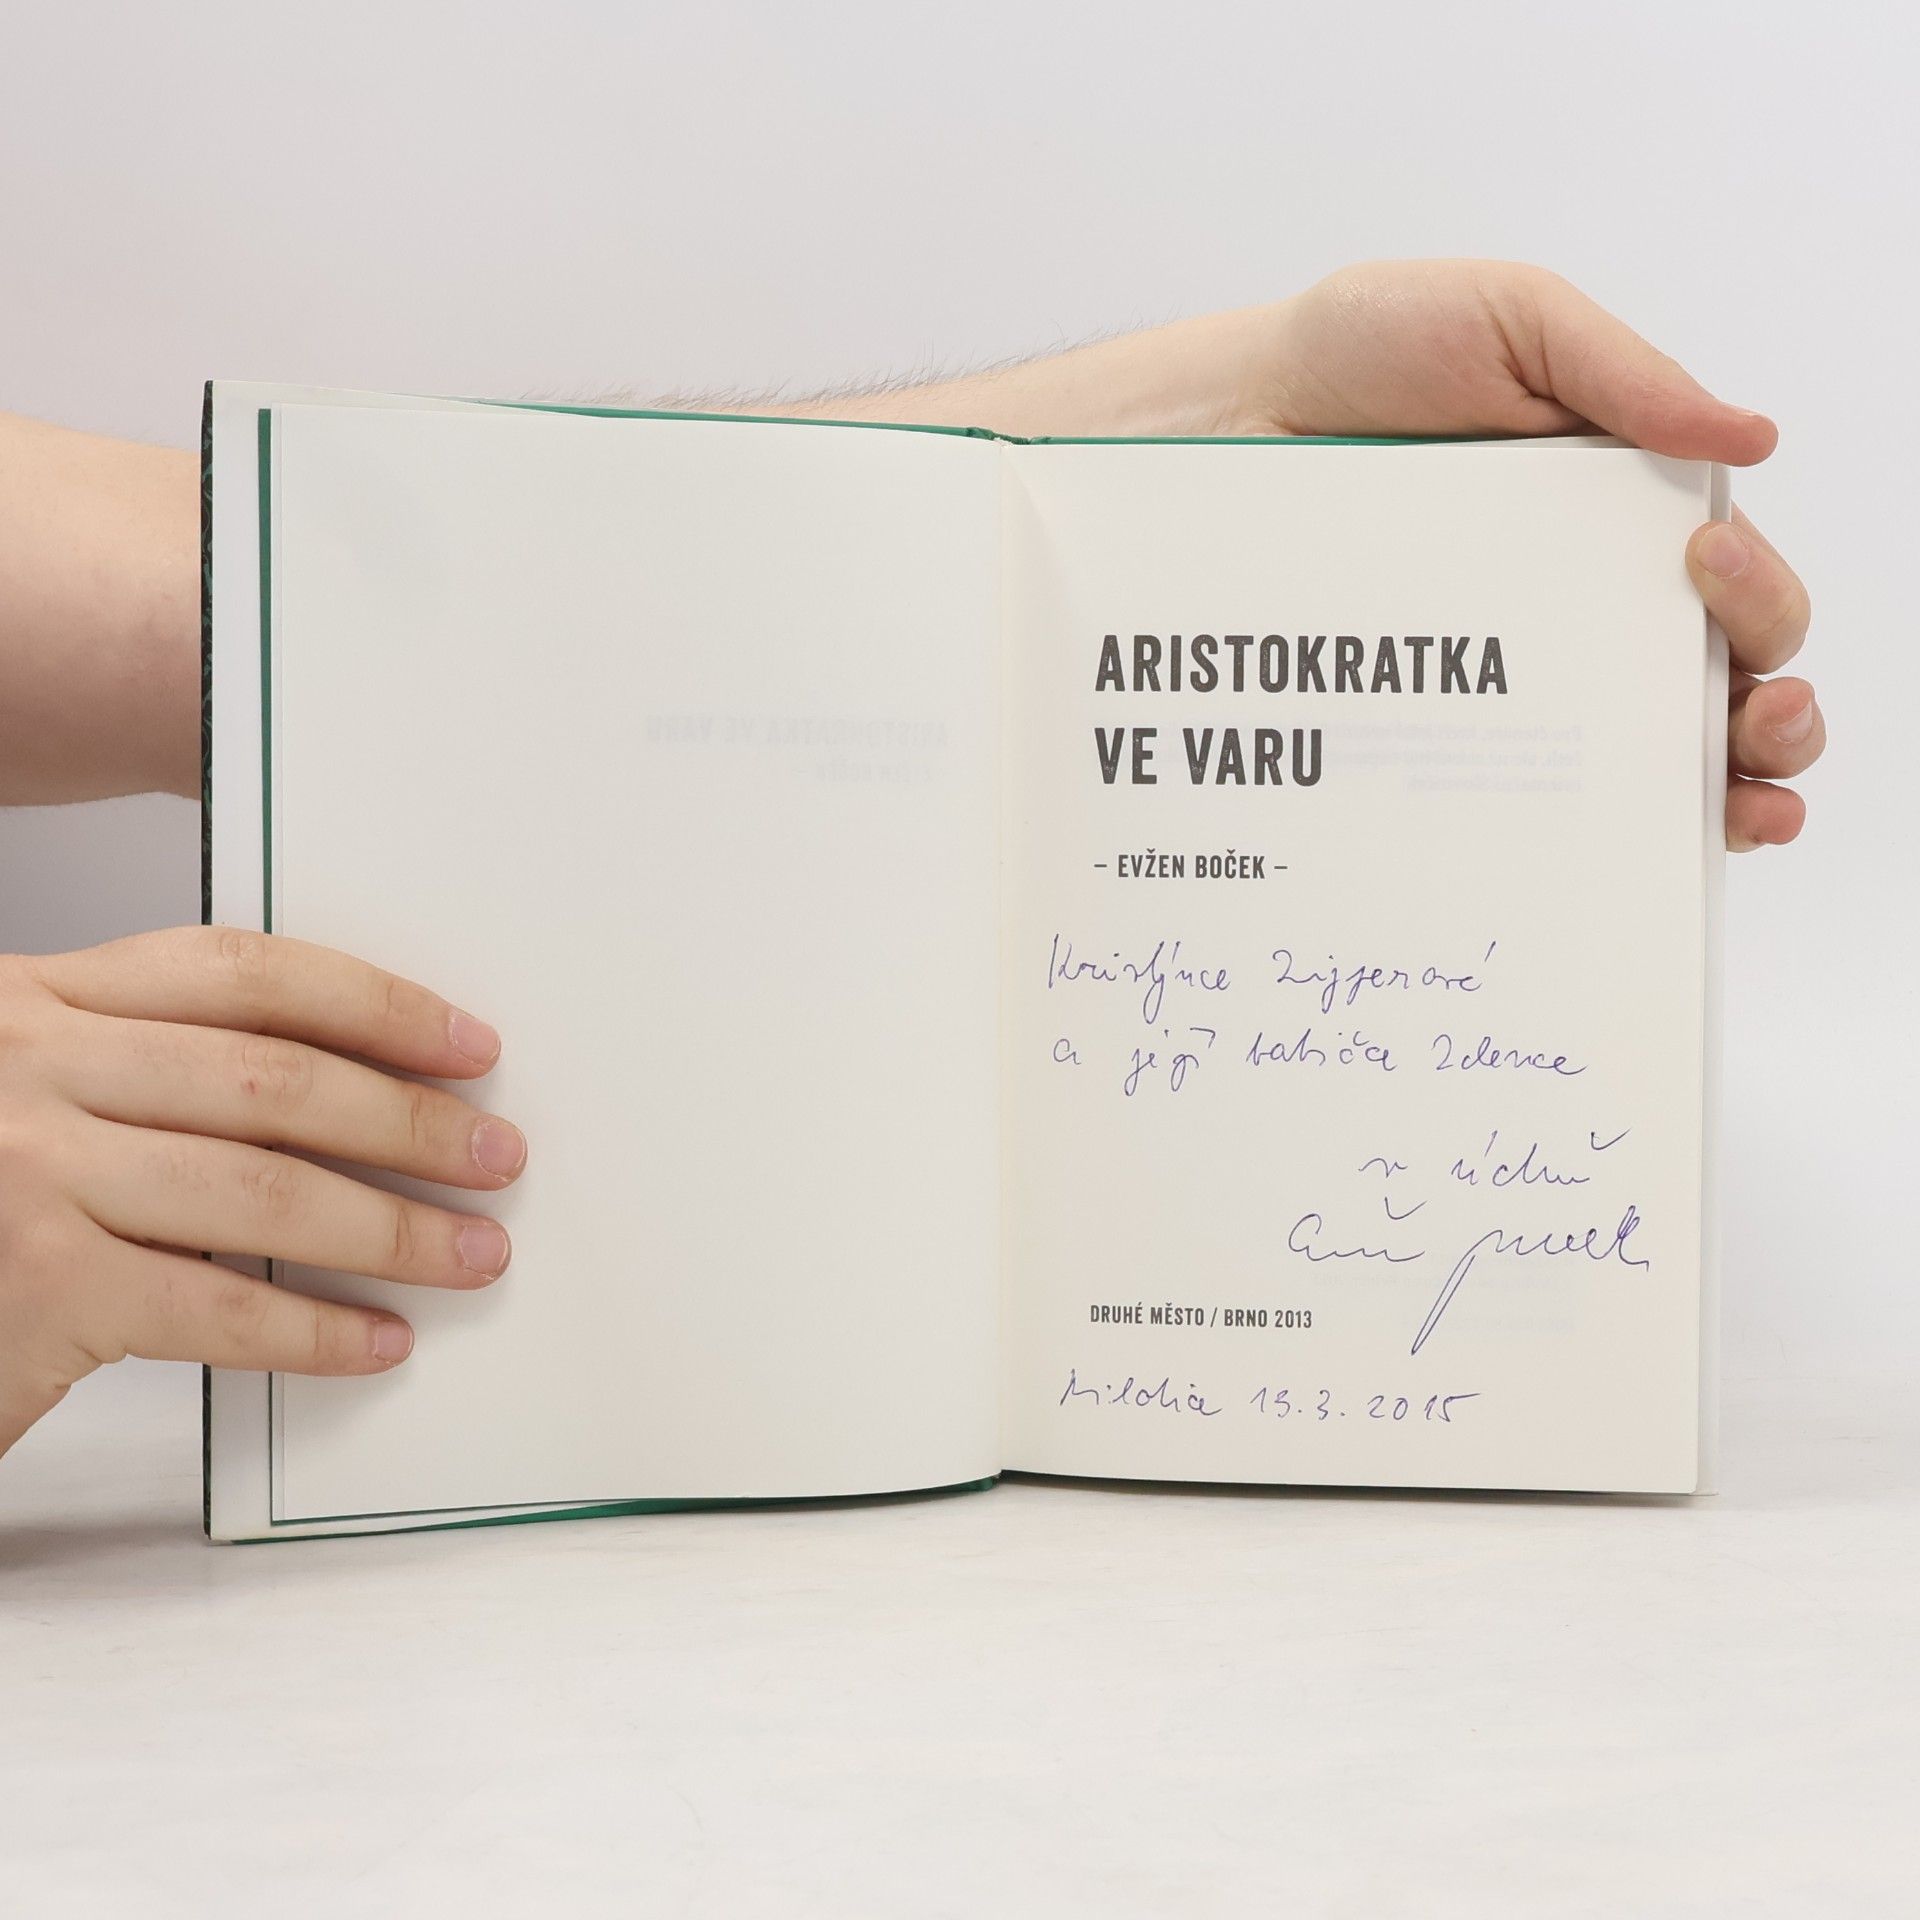 ARISTOKRATKA
VE VARU
– EVŽEN BOČEK –
Kristýnce
a její babičce Zdence
v úctě
DRUHÉ MĚSTO / BRNO 2013
Milotice 13.3.2015